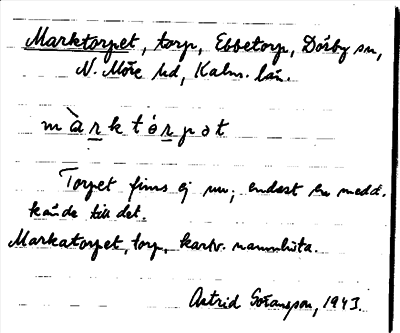 Marktorpet, torp, Ebbetorp, Dörby sn,
N. Möre hd, Kalm. län.
màrktórpət
Torpet finns ej nu; endast en medd.
kände till det.
Markatorpet, torp, kartv. namnlista.
Astrid Göransson, 1943.